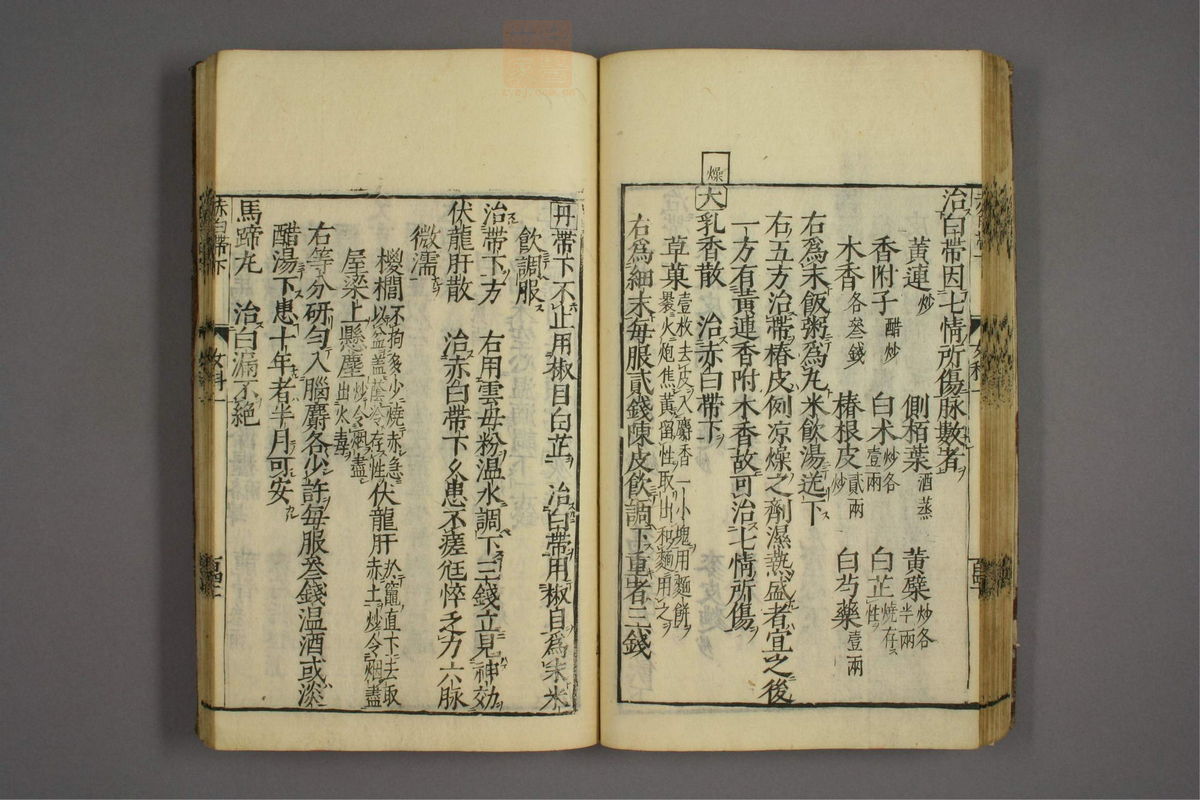 治白帶因七情所傷脉數者
黃連炒 側栢葉酒蒸 黃檗炒各半兩
香附子醋炒 白术炒各壹兩 白芷燒存性
木香各叄錢 椿根皮炒貳兩 白芍藥壹兩
右爲末飯粥爲丸米飲湯送下
右五方治帶椿皮例凉燥之劑濕熱盛者宜之後
一方有黃連香附木香故可治七情所傷
燥
大乳香散 治赤白帶下
草菓壹枚去皮入麝香一小塊用麵餅裹火炮焦黃留性取出和麵用之
右爲細末每服貳錢陳皮飲調下重者三錢
丹帶下不止用椒目白芷 治白帶用椒目爲末米
飲調服
治帶下方 右用雲母粉溫水調下三錢立見神効
伏龍肝散 治赤白帶下久患不瘥尫悴乏力六脉
微濡
椶櫚不拘多少燒赤急以盆蓋蔭冷存性 伏龍肝於竈直下去取赤土炒令烟盡
屋梁上懸塵炒令烟盡出火毒
右等分硏勻入腦麝各少許每服叄錢溫酒或淡
醋湯下患十年者半月可安
馬蹄丸 治白漏不絕
赤白帶下 女科一